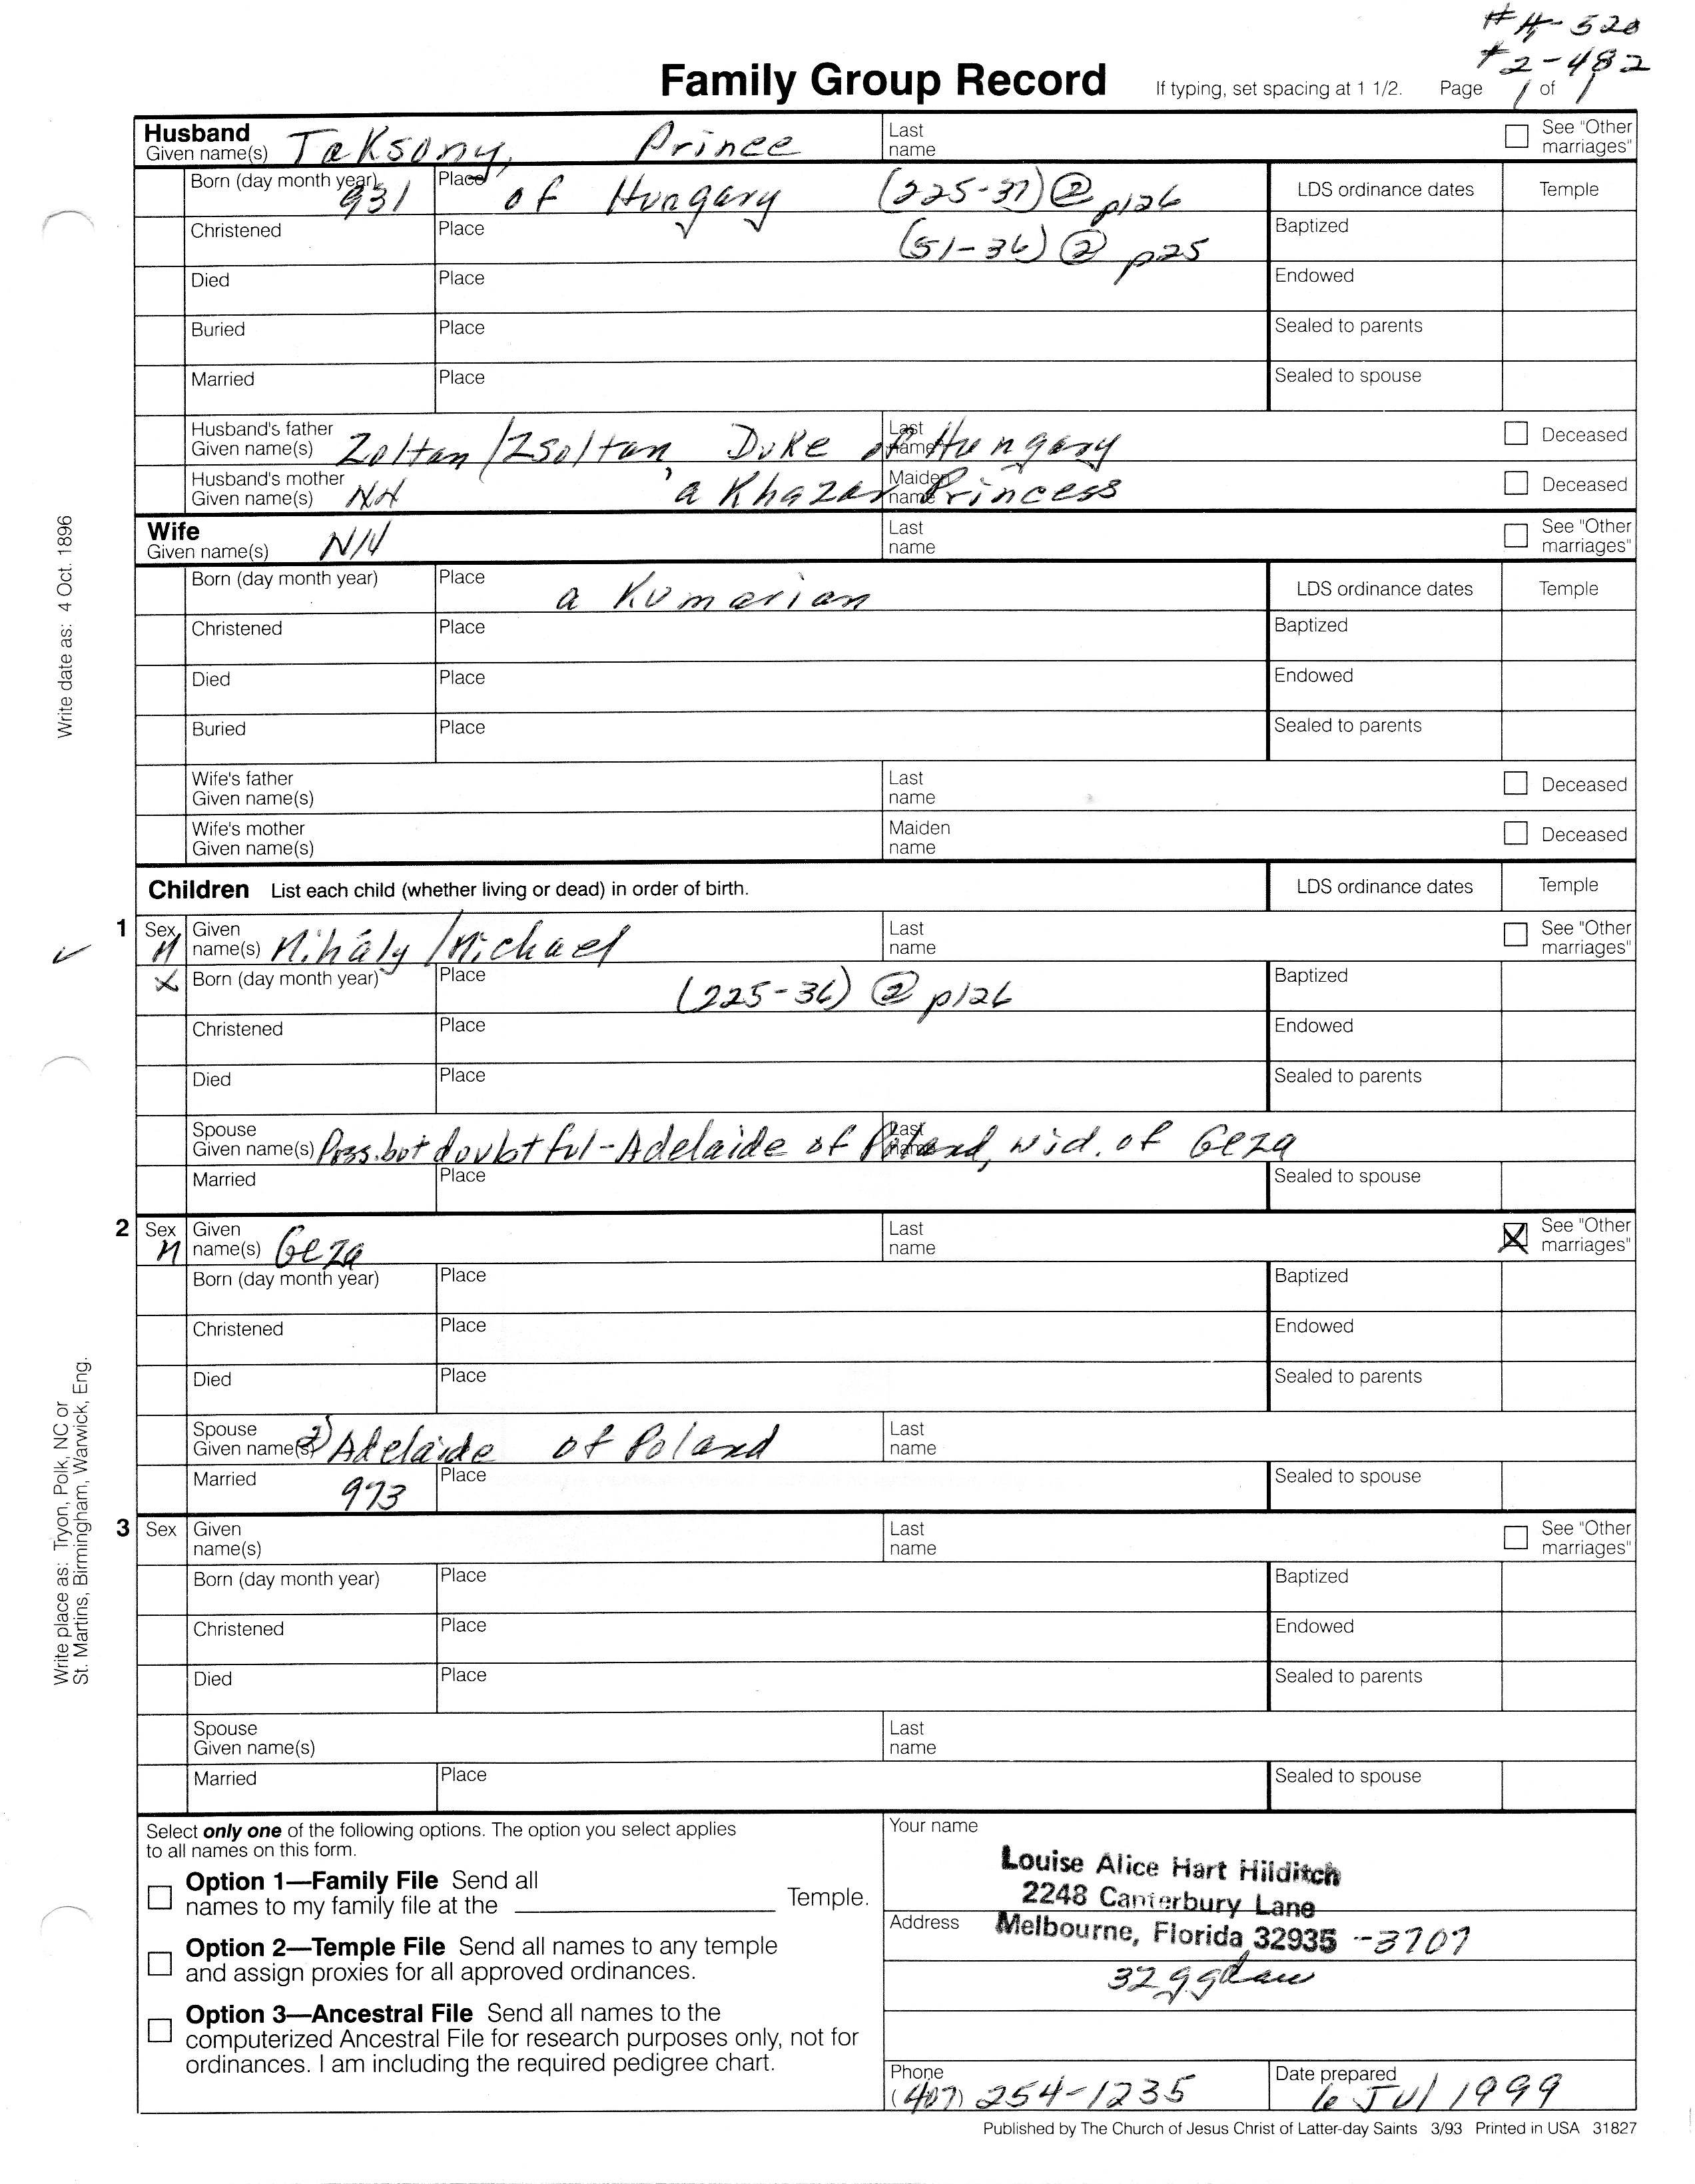 # H-520
# 2-482
Family Group Record If typing, set spacing at 1 1/2. Page 1 of 1
Husband
Given name(s) Taksony, Prince Last name See "Other marriages"
Born (day month year) 931 Place of Hungary (225-37) @ p126 LDS ordinance dates Temple
Christened Place (51-36) @ p25 Baptized
Died Place Endowed
Buried Place Sealed to parents
Married Place Sealed to spouse
Husband's father Given name(s) Zoltan/Zsoltan, Duke of Hungary Last name Deceased
Husband's mother Given name(s) NN 'a Khazar Princess Maiden name Deceased
Wife
Given name(s) NN Last name See "Other marriages"
Born (day month year) Place a Kumarian LDS ordinance dates Temple
Christened Place Baptized
Died Place Endowed
Buried Place Sealed to parents
Wife's father Given name(s) Last name Deceased
Wife's mother Given name(s) Maiden name Deceased
Children List each child (whether living or dead) in order of birth. LDS ordinance dates Temple
1 Sex M Given name(s) Mihály/Michael Last name See "Other marriages"
X Born (day month year) Place (225-36) @ p126 Baptized
Christened Place Endowed
Died Place Sealed to parents
Spouse Given name(s) Poss. but doubtful-Adelaide of Poland, wid. of Geza Last name
Married Place Sealed to spouse
2 Sex M Given name(s) Geza Last name X See "Other marriages"
Born (day month year) Place Baptized
Christened Place Endowed
Died Place Sealed to parents
Spouse Given name(s) 2) Adelaide of Poland Last name
Married 973 Place Sealed to spouse
3 Sex Given name(s) Last name See "Other marriages"
Born (day month year) Place Baptized
Christened Place Endowed
Died Place Sealed to parents
Spouse Given name(s) Last name
Married Place Sealed to spouse
Select only one of the following options. The option you select applies
to all names on this form.
Option 1—Family File Send all
names to my family file at the Temple.
Option 2—Temple File Send all names to any temple
and assign proxies for all approved ordinances.
Option 3—Ancestral File Send all names to the
computerized Ancestral File for research purposes only, not for
ordinances. I am including the required pedigree chart.
Your name
Louise Alice Hart Hilditch
2248 Canterbury Lane
Address Melbourne, Florida 32935 -3707
Phone (407) 254-1235
Date prepared 6 Jul 1999
Published by The Church of Jesus Christ of Latter-day Saints 3/93 Printed in USA 31827
Write date as: 4 Oct. 1896
Write place as: Tryon, Polk, NC or
St. Martins, Birmingham, Warwick, Eng.